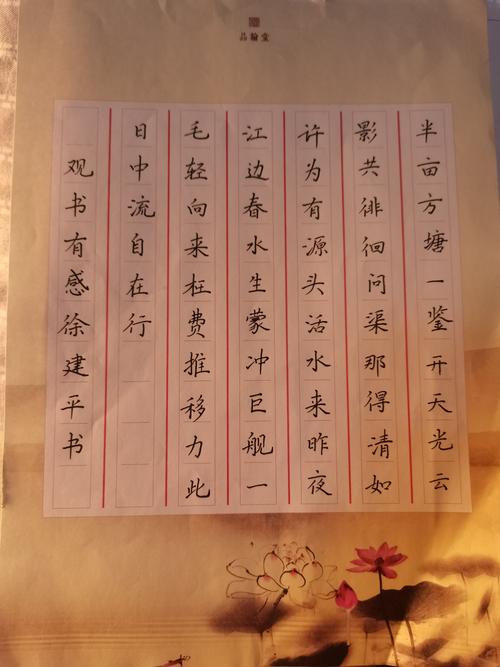 品翰堂
半亩方塘一鉴开天光云
影共徘徊问渠那得清如
许为有源头活水来昨夜
江边春水生蒙冲巨舰一
毛轻向来枉费推移力此
日中流自在行
观书有感徐建平书